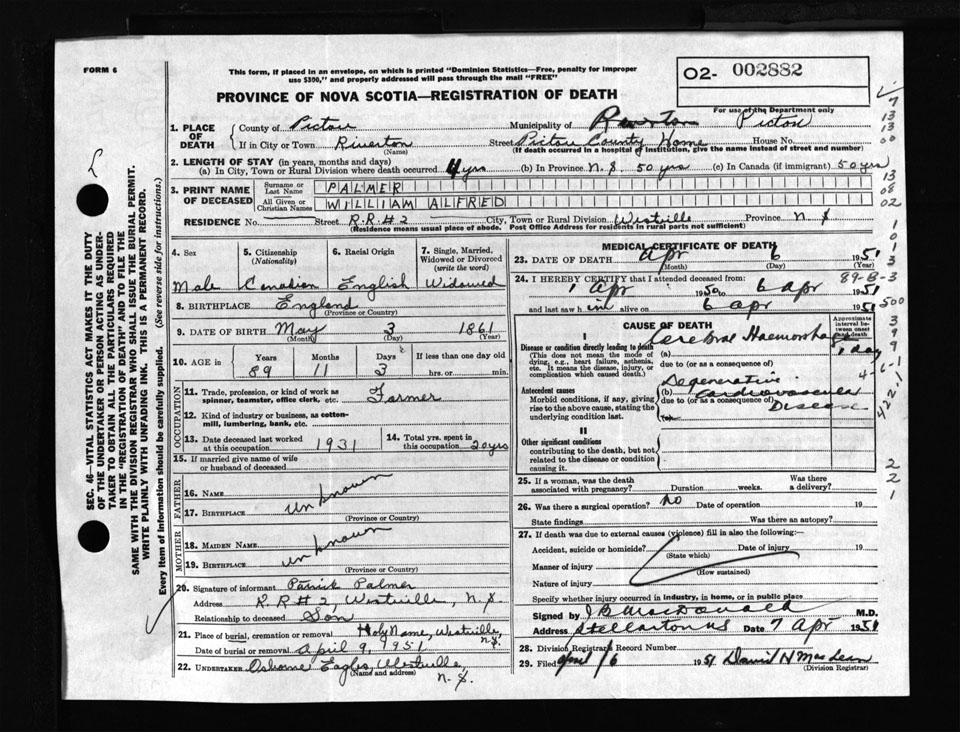 FORM 6
This form, if placed in an envelope, on which is printed "Dominion Statistics—Free, penalty for improper
use $300," and properly addressed will pass through the mail "FREE"
O2- 002882
PROVINCE OF NOVA SCOTIA—REGISTRATION OF DEATH
For use of the Department only
1. PLACE OF DEATH
County of Pictou Municipality of Pictou
If in City or Town Riverton (Name) Street Pictou County Home House No.
(If death occurred in a hospital or institution, give the name instead of street and number)
2. LENGTH OF STAY (in years, months and days)
(a) In City, Town or Rural Division where death occurred 4 yrs (b) In Province N.S. 50 yrs (c) In Canada (if immigrant) 50 yrs
3. PRINT NAME OF DECEASED
Surname or Last Name PALMER
All Given or Christian Names WILLIAM ALFRED
RESIDENCE No. Street R.R.#2 City, Town or Rural Division Westville Province N.S
(Residence means usual place of abode. Post Office Address for residents in rural parts not sufficient)
4. Sex 5. Citizenship (Nationality) 6. Racial Origin 7. Single, Married, Widowed or Divorced (write the word)
Male Canadian English Widowed
8. BIRTHPLACE England
(Province or Country)
9. DATE OF BIRTH May 3 1861
(Month) (Day) (Year)
10. AGE in Years Months Days If less than one day old
89 11 3 hrs. or min.
OCCUPATION
11. Trade, profession, or kind of work as spinner, teamster, office clerk, etc. Farmer
12. Kind of industry or business, as cotton-mill, lumbering, bank, etc.
13. Date deceased last worked at this occupation 1931 14. Total yrs. spent in this occupation 20 yrs
15. If married give name of wife or husband of deceased
FATHER
16. Name
unknown
17. BIRTHPLACE
(Province or Country)
MOTHER
18. MAIDEN NAME
unknown
19. BIRTHPLACE
(Province or Country)
20. Signature of informant Patrick Palmer
Address R.R #2, Westville, N.S.
Relationship to deceased Son
21. Place of burial, cremation or removal Holy Name, Westville, N.S.
Date of burial or removal April 9, 1951
22. UNDERTAKER Osborne Eagles, Westville, N.S.
(Name and address)
MEDICAL CERTIFICATE OF DEATH
23. DATE OF DEATH Apr 6 1951
(Month) (Day)
24. I HEREBY CERTIFY that I attended deceased from:
1 Apr 1950 to 6 Apr 1951
and last saw him alive on 6 apr 1951
CAUSE OF DEATH
Approximate interval between onset and death
I
Disease or condition directly leading to death
(This does not mean the mode of dying, e.g., heart failure, asthenia, etc. It means the disease, injury, or complication which caused death.)
Cerebral Haemorrhage
1 day
due to (or as a consequence of)
Antecedent causes
Morbid conditions, if any, giving rise to the above cause, stating the underlying condition last.
(b) Degenerative
Cardiovascular
due to (or as a consequence of)
Disease
II
Other significant conditions
contributing to the death, but not related to the disease or condition causing it.
25. If a woman, was the death associated with pregnancy? Duration weeks. Was there a delivery?
26. Was there a surgical operation? no Date of operation 19
State findings Was there an autopsy?
27. If death was due to external causes (violence) fill in also the following:—
Accident, suicide or homicide? Date of injury 19
(State which)
Manner of injury
(How sustained)
Nature of injury
Specify whether injury occurred in industry, in home, or in public place
Signed by J B MacDonald M.D.
Address Stellarton NS Date 7 Apr 1951
28. Division Registrar's Record Number
29. Filed April 16 1951 David H MacLean
(Division Registrar)
SEC. 46—VITAL STATISTICS ACT MAKES IT THE DUTY
OF THE UNDERTAKER OR PERSON ACTING AS UNDER-
TAKER TO OBTAIN ALL THE PARTICULARS REQUIRED
IN THE "REGISTRATION OF DEATH" AND TO FILE THE
SAME WITH THE DIVISION REGISTRAR WHO SHALL ISSUE THE BURIAL PERMIT.
WRITE PLAINLY WITH UNFADING INK. THIS IS A PERMANENT RECORD.
Every item of information should be carefully supplied. (See reverse side for instructions.)
7
13
13
00
13
08
02
1
0
1
3
89-B-3
500
3
9
9
4-6-1
422.1
2
2
1